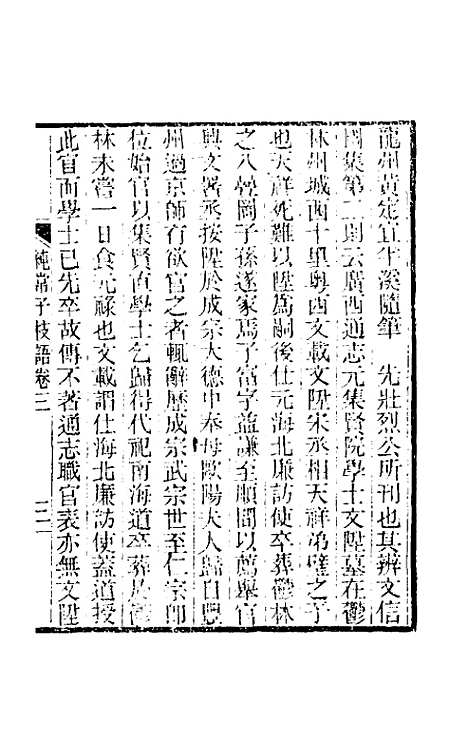 龍州黃定宜半溪隨筆　先壯烈公所刊也其辨文信
國集第二則云廣西通志元集賢院學士文陞墓在鬱
林州城西十里粵西文載文陞宋丞相天祥弟璧之子
也天祥死難以陞爲嗣後仕元海北廉訪使卒葬鬱林
之八疊岡子孫遂家焉子富字藎謙至順間以薦舉官
興文署丞按陞於成宗大德中奉母歐陽夫人歸自豐
州過京師有欲官之者輒辭歷成宗武宗世至仁宗卽
位始官以集賢直學士乞歸得代祀南海道卒葬於
林未嘗一日食元祿也文載謂仕海北廉訪使蓋道授
此官而學士已先卒故傳不著通志職官表亦無文陞
純常子枝語卷三　二